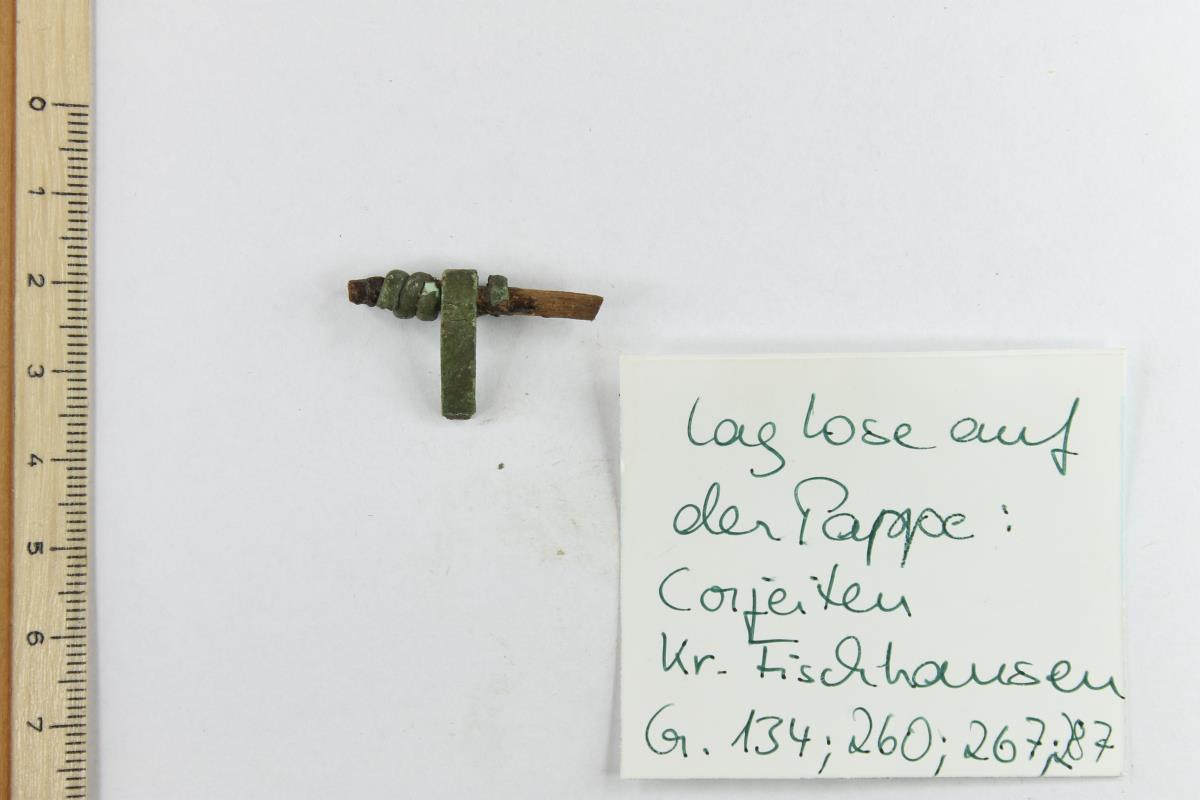 0
1
2
3
4
5
6
7
lag lose auf
der Pappe:
Corjeiten
Kr. Fischhausen
G. 134; 260; 267; 287